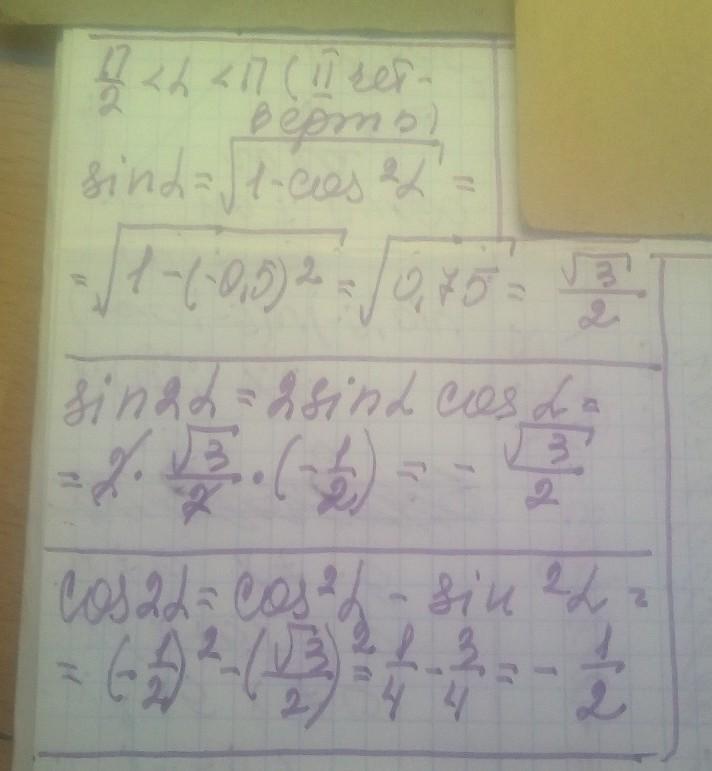 П/2 < α < П (II чет-
верть)
sinα = √(1 - cos²α) =
= √(1 - (-0,5)²) = √0,75 = √3/2
sin2α = 2sinα cosα =
= 2 · √3/2 · (-1/2) = - √3/2
cos2α = cos²α - sin²α =
= (-1/2)² - (√3/2)² = 1/4 - 3/4 = - 1/2